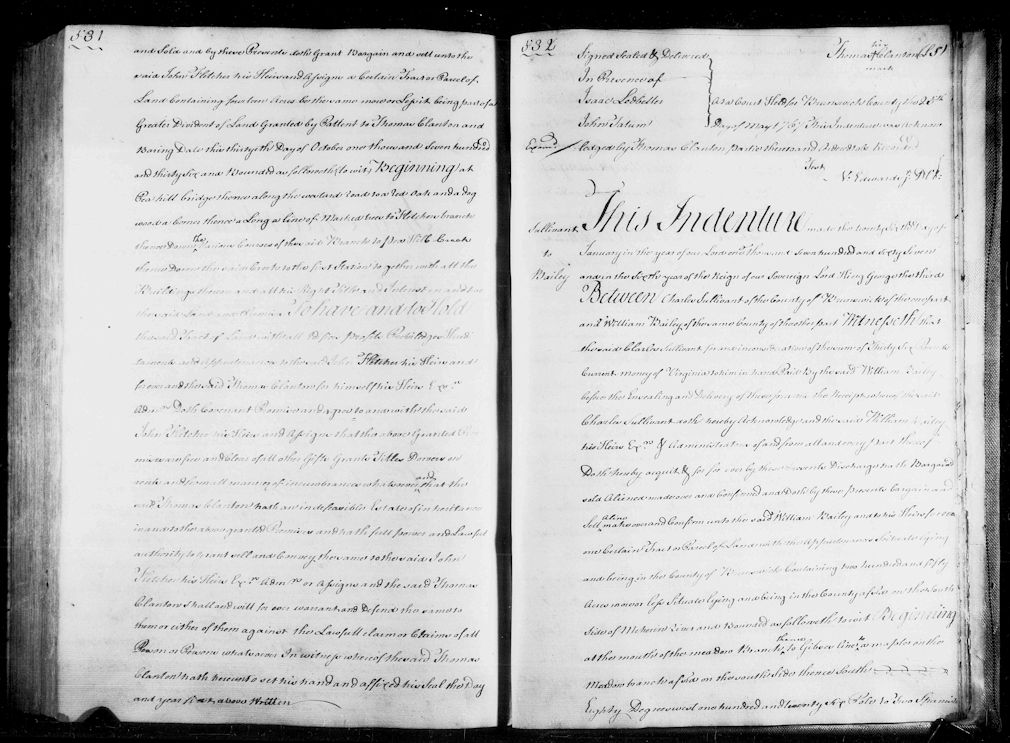 531
and Sold and by these Presents doth Grant Bargain and sell unto the
said John Fletcher his Heirs and Assigns a Certain Tract or Parcel of
Land Containing fourteen Acres be the same more or Less it being part of a
Greater Divident of Land Granted by Pattent to Thomas Clanton and
Baring Date this thirtyth Day of October one thousand Seven hundred
and thirty Six and Bounded as followeth (to wit) Beginning at
Pea hill bridge thence along the road to a Red Oak and a dog
wood a Corner thence a Long a line of Marked trees to Fletchers branch
thence down the Various Courses of the said Branch to Pea Hill Creek
thence down the said Creek to the first Station together with all the
Buildings thereon and all his Right Title and Interest in and to
the said Land and Premises To have and to Hold
the said Tract of Land with all
and Appurtenances to the said John Fletcher his Heirs and
forever and the said Thomas Clanton for himself his Heirs Exrs
Admrs Doth Covenant Promise and agree to and with the said
John Fletcher his Heirs and Assigns that the above Granted
are free and Clear of all other Gifts Grants Titles Dowers
and from all manner of incumbrances whatsoever and that the
said Thomas Clanton hath an indefeasible Estate of inheritance
in and to the above granted Premises and hath full power and Lawfull
authority to Grant sell and Convey the same to the said John
Fletcher his Heirs Exrs Admrs or Assigns and the said Thomas
Clanton Shall and will for ever warrant and Defend the same to
them or either of them against the Lawfull claim or Claims of all
Person or Persons whatsoever In witness whereof the said Thomas
Clanton hath hereunto set his hand and affixed his Seal the Day
and year first above Written
532
Signed Sealed & Delivered
In Presence of
Isaac Ledbetter
John Tatum
his
Thomas Clanton LS
mark
At a Court Held for Brunswick County the 25th
Day of May 1767 This Indenture was acknow
ledged by Thomas Clanton Partie thereto and Ordered to be Recorded
Test
N. Edwards Jr. DCk.
Examined
Sullivant
to
Bailey
This Indenture made the twenty Day of
January in the year of our Lord one thousand and seven hundred and sixty Seven
and in the Seventh year of the Reign of our Sovereign Lord King George the third
Between Charles Sullivant of the County of Brunswick of the one part
and William Bailey of the same County of the other part Witnesseth that
the said Charles Sullivant for and in consideration of the sum of Thirty Six Pounds
Current money of Virginia to him in hand Paid By the said William Bailey
before the Ensealing and Delivery of these presents the Receipt whereof the said
Charles Sullivant doth hereby Acknowledge and the said William Bailey
his Heirs Exrs & Administrators of and from all and every part thereof
Doth hereby acquit & for ever by these Presents Discharge hath Bargained
sold Aliened made over and Confirmed and Doth by these Presents bargain and
Sell Aline make over and Confirm unto the said William Bailey and to his Heirs for ever
one Certain Tract or Parcel of Land with the Appurtenances Situate lying
and being in the County of Brunswick Containing two hundred and fifty
Acres more or less Situate lying and being in the County aforesd on the South
Side of Meherrin River and bounded as followeth to wit Beginning
at the mouth of the meadow Branch thence to Gibses line to a on the
Meadow branch aforesd on the south Side thence South
Eighty Degrees west one hundred and twenty Six Poles to Two Spanish